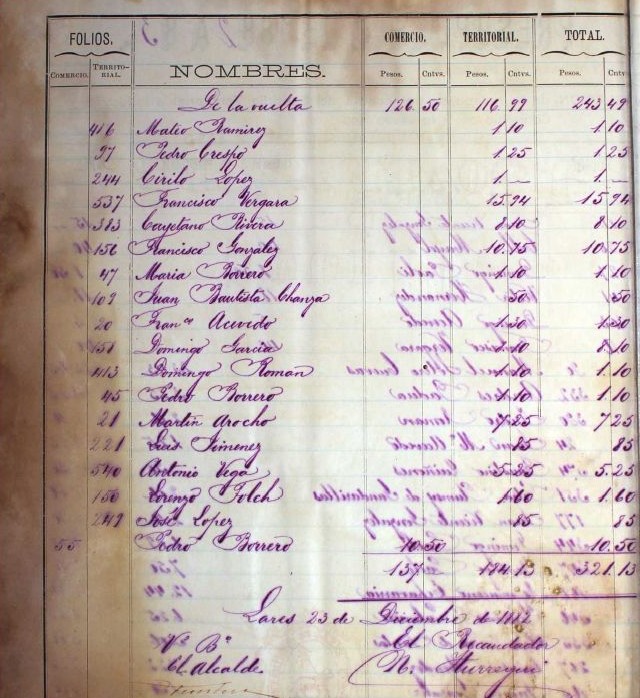 FOLIOS. COMERCIO. TERRITORIAL. TOTAL.
COMERCIO. TERRITO-RIAL. NOMBRES. Pesos. Cntvs. Pesos. Cntvs. Pesos. Cntv
De la vuelta 126. 50 116. 99 243 49
416 Mateo Ramirez 1. 10 1. 10
97 Pedro Crespo 1. 25 1. 25
244 Cirilo Lopez 1. — 1. —
537 Francisco Vergara 15. 94 15 94
383 Cayetano Rivera 8 10 8 10
156 Francisco Gonzalez 10. 75 10. 75
47 Maria Borrero 1. 10 1. 10
102 Juan Bautista Chanza 50 50
20 Fran.co Acevedo 1. 30 1. 30
151 Domingo Garcia 10 10
413 Domingo Roman 1. 10 1. 10
45 Pedro Borrero 1. 10 1. 10
21 Martin Arocho 7 25 7 25
221 Luis Jimenez 85 85
540 Antonio Vega 5. 25 5. 25
150 Lorenzo Folch 1. 60 1. 60
José Lopez 85 85
55 Pedro Borrero 10. 50 10. 50
137 184 13 321. 13
Lares 23 de Diciembre de
Vº Bº El Recaudador
El Alcalde N.